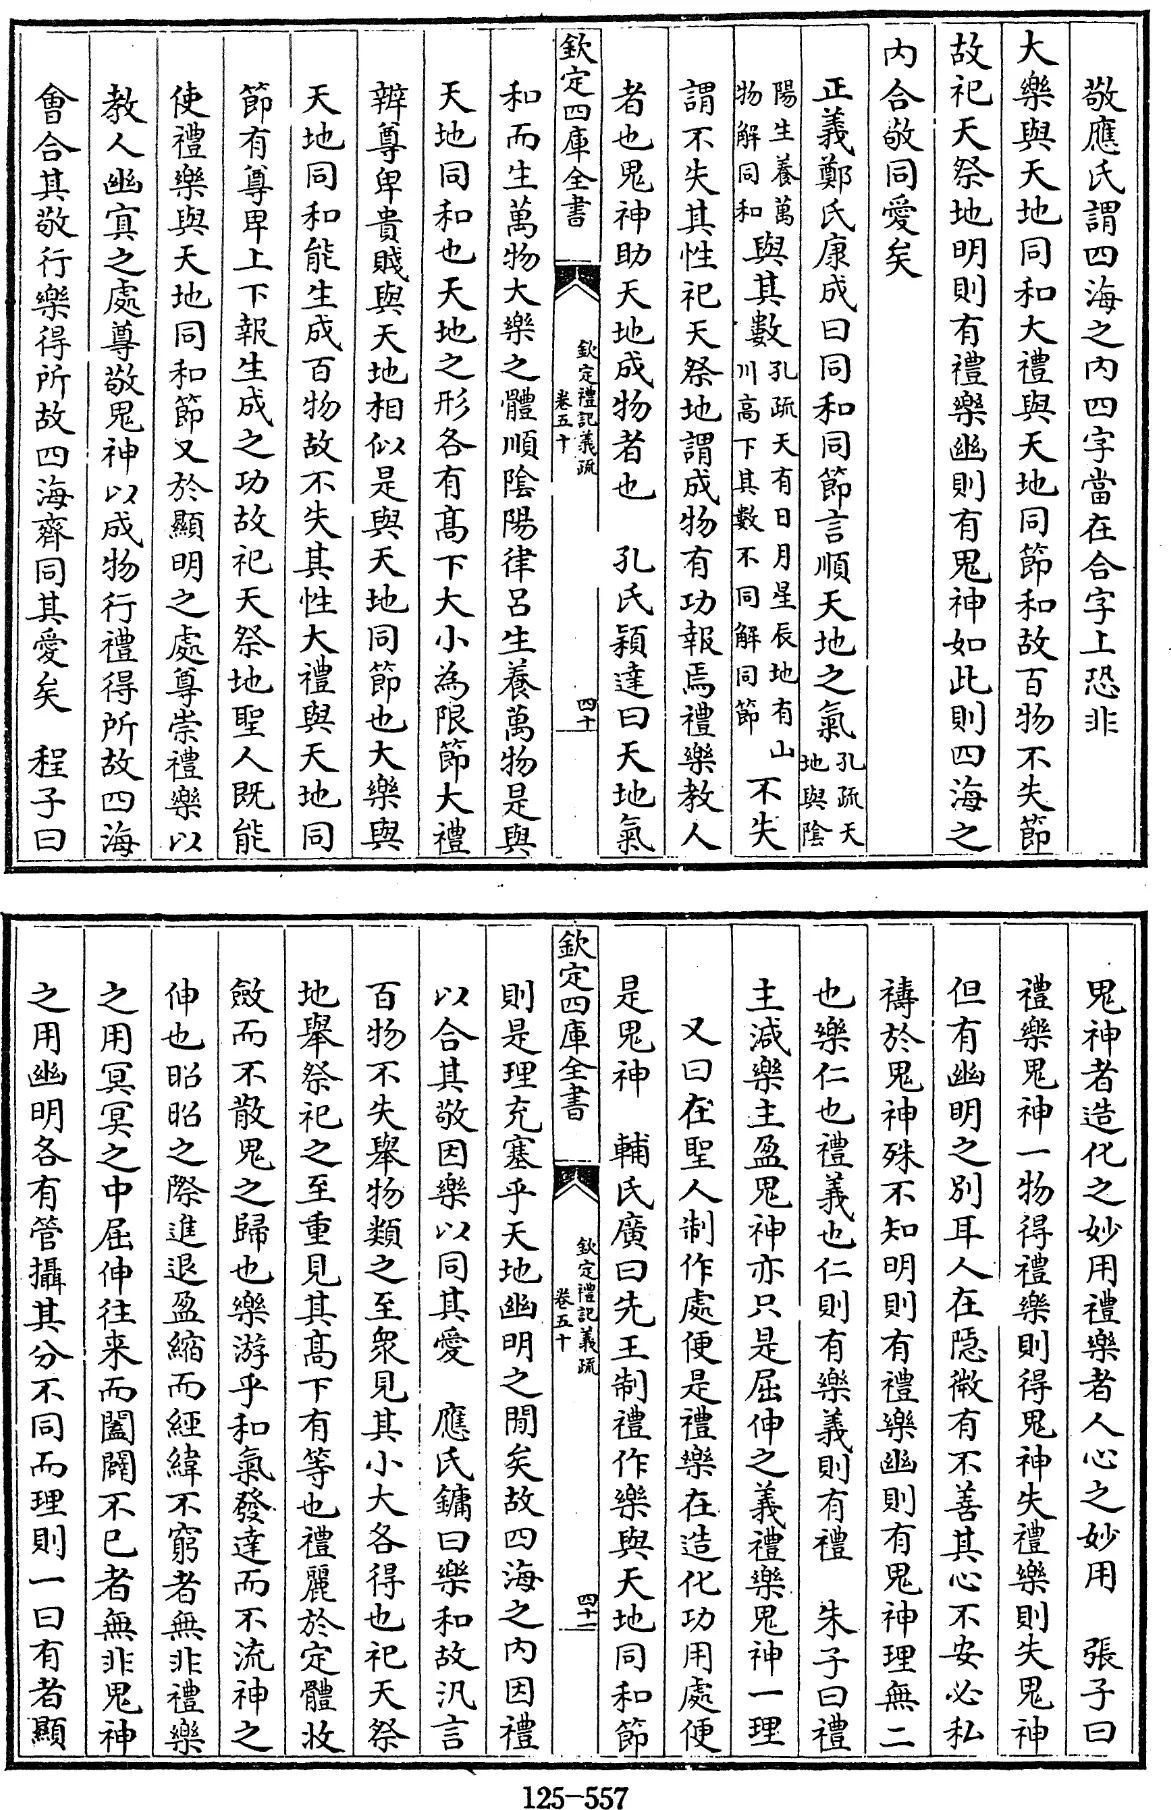 敬應氏謂四海之内四字當在合字上恐非
大樂與天地同和大禮與天地同節和故百物不失節
故祀天祭地明則有禮樂幽則有鬼神如此則四海之
内合敬同愛矣
正義鄭氏康成曰同和同節言順天地之氣孔疏天地與陰
陽生養萬物解同和與其數孔疏天有日月星辰地有山川高下其數不同解同節不失
謂不失其性祀天祭地謂成物有功報焉禮樂教人
者也鬼神助天地成物者也　孔氏穎達曰天地氣
欽定四庫全書　欽定禮記義疏 卷五十　四十
和而生萬物大樂之體順陰陽律呂生養萬物是與
天地同和也天地之形各有高下大小為限節大禮
辨尊卑貴賤與天地相似是與天地同節也大樂與
天地同和能生成百物故不失其性大禮與天地同
節有尊卑上下報生成之功故祀天祭地聖人既能
使禮樂與天地同和節又於顯明之處尊崇禮樂以
教人幽冥之處尊敬鬼神以成物行禮得所故四海
會合其敬行樂得所故四海齊同其愛矣　程子曰
鬼神者造化之妙用禮樂者人心之妙用　張子曰
禮樂鬼神一物得禮樂則得鬼神失禮樂則失鬼神
但有幽明之別耳人在隱微有不善其心不安必私
禱於鬼神殊不知明則有禮樂幽則有鬼神理無二
也樂仁也禮義也仁則有樂義則有禮　朱子曰禮
主減樂主盈鬼神亦只是屈伸之義禮樂鬼神一理
又曰在聖人制作處便是禮樂在造化功用處便
是鬼神　輔氏廣曰先王制禮作樂與天地同和節
欽定四庫全書　欽定禮記義疏 卷五十　四十一
則是理充塞乎天地幽明之間矣故四海之内因禮
以合其敬因樂以同其愛　應氏鏞曰樂和故汎言
百物不失舉物類之至衆見其小大各得也祀天祭
地舉祭祀之至重見其高下有等也禮麗於定體收
斂而不散鬼之歸也樂游乎和氣發達而不流神之
伸也昭昭之際進退盈縮而經緯不窮者無非禮樂
之用冥冥之中屈伸往來而闔闢不已者無非鬼神
之用幽明各有管攝其分不同而理則一曰有者顯
125-557